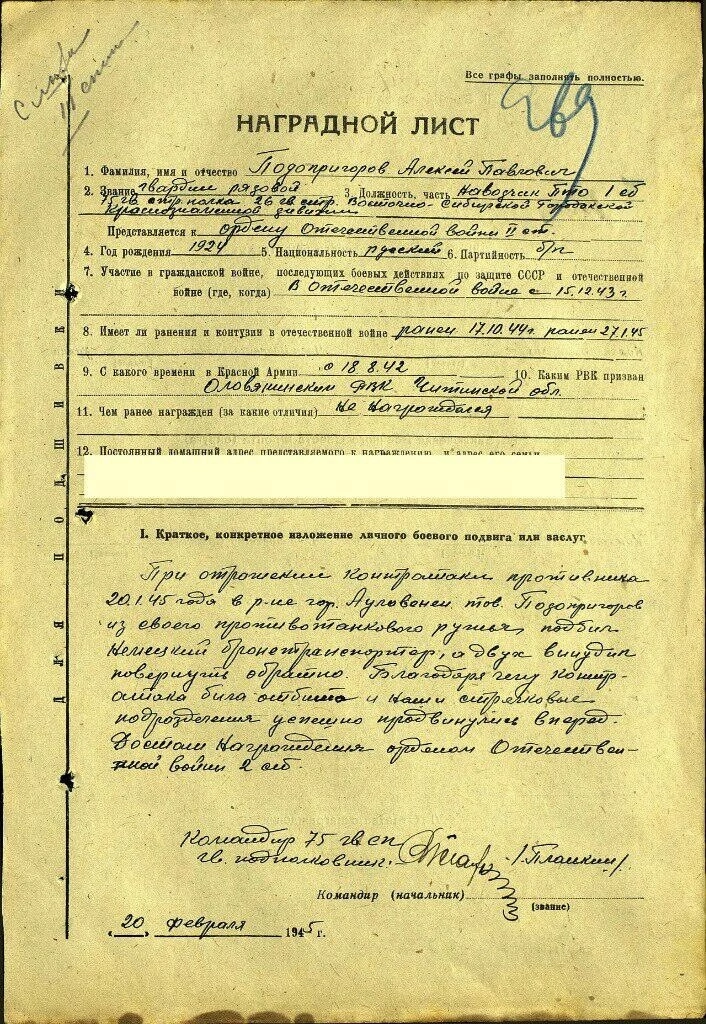 Слава
III степ
Все графы заполнять полностью.
НАГРАДНОЙ ЛИСТ
1. Фамилия, имя и отчество Подопригоров Алексей Павлович
2. Звание гвардии рядовой 3. Должность, часть Наводчик ПТО 1 сб
75 гв. стр. полка 26 гв. стр. Восточно-Сибирской Городокской
Краснознаменной дивизии
Представляется к ордену Отечественной войны II ст.
4. Год рождения 1924 5. Национальность русский 6. Партийность б/п
7. Участие в гражданской войне, последующих боевых действиях по защите СССР и отечественной
войне (где, когда) В Отечественной войне с 15.12.43 г.
8. Имеет ли ранения и контузии в отечественной войне ранен 17.10.44г. ранен 27.1.45
9. С какого времени в Красной Армии с 18.8.42 10. Каким РВК призван
Оловянинским РВК Читинской обл.
11. Чем ранее награжден (за какие отличия) Не Награждался
12. Постоянный домашний адрес представляемого к награждению и адрес его семьи
ДЛЯ ПОДШИВКИ
I. Краткое, конкретное изложение личного боевого подвига или заслуг
При отрожении контратаки противника
20.1.45 года в р-не гор. Ауловенен тов. Подопригоров
из своего противотанкового ружья, подбил
Немецкий бронетранспортер, а двух винудил
повернуть обратно. Благодаря чему контр-
атака была отбита и наши стрелковые
подрозделения успешно продвинулись вперед.
Достоин Награждения орденом Отечествен-
ной войны 2 ст.
Командир 75 гв сп
гв. подполковник:
Командир (начальник)
(звание)
„20„ февраля 1945 г.